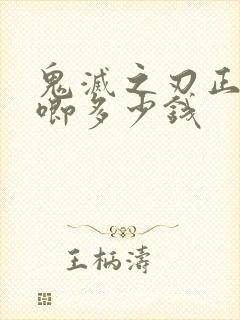 鬼滅之刃正
唧多少錢
王柄濤